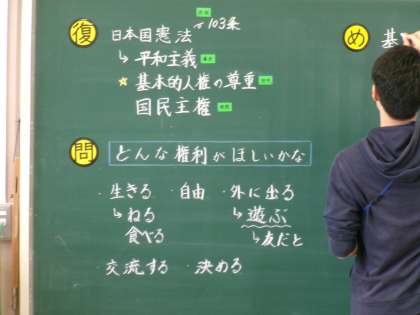 復 日本国憲法 〜103条
↳平和主義
☆基本的人権の尊重
国民主権
問 どんな権利がほしいかな
・生きる ・自由 ・外に出る
↳ねる ↳遊ぶ
食べる ↳友だと
・交流する ・決める
め 基